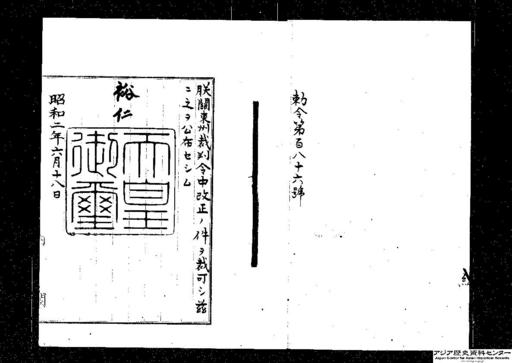 勅令第百八十六號
朕關東州裁判令中改正ノ件ヲ裁可シ茲
ニ之ヲ公布セシム
裕仁
天皇
御璽
昭和二年六月十八日
アジア歴史資料センター
Japan Center for Asian Historical Records